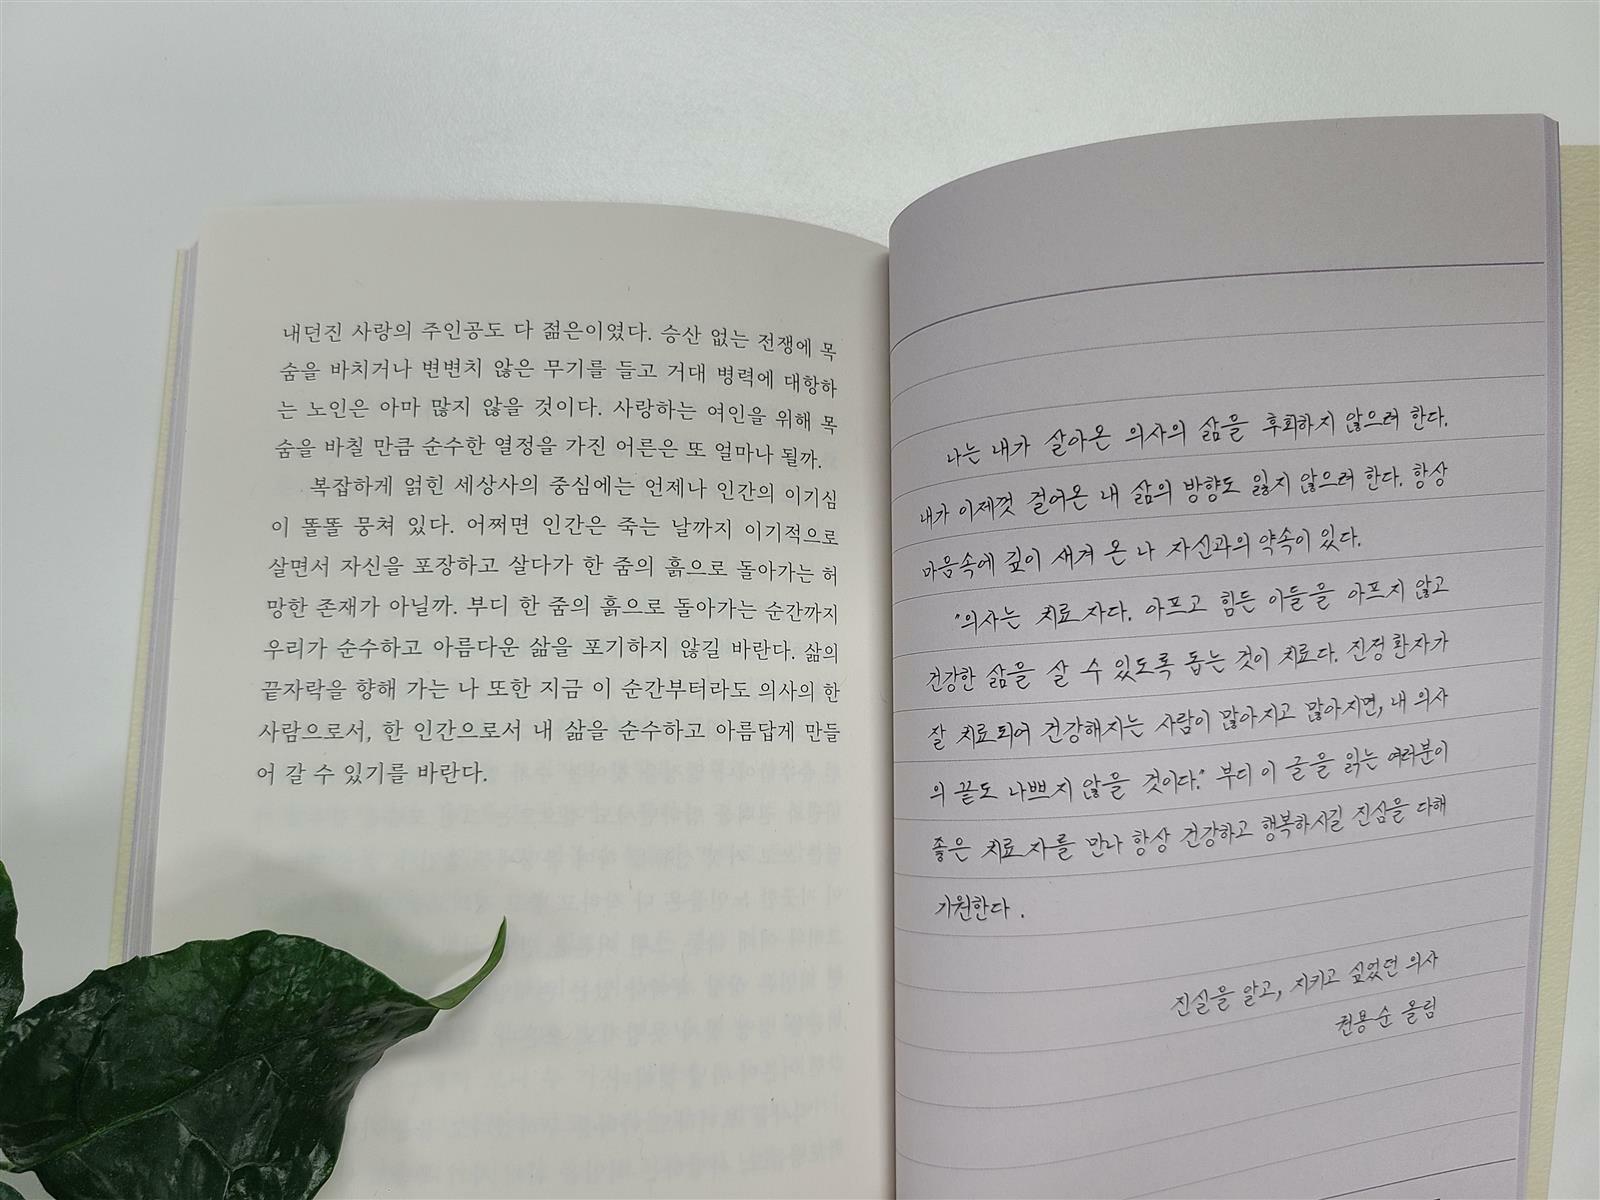 내던진 사랑의 주인공도 다 젊은이였다. 승산 없는 전쟁에 목
숨을 바치거나 변변치 않은 무기를 들고 거대 병력에 대항하
는 노인은 아마 많지 않을 것이다. 사랑하는 여인을 위해 목
숨을 바칠 만큼 순수한 열정을 가진 어른은 또 얼마나 될까.
복잡하게 얽힌 세상사의 중심에는 언제나 인간의 이기심
이 똘똘 뭉쳐 있다. 어쩌면 인간은 죽는 날까지 이기적으로
살면서 자신을 포장하고 살다가 한 줌의 흙으로 돌아가는 허
망한 존재가 아닐까. 부디 한 줌의 흙으로 돌아가는 순간까지
우리가 순수하고 아름다운 삶을 포기하지 않길 바란다. 삶의
끝자락을 향해 가는 나 또한 지금 이 순간부터라도 의사의 한
사람으로서, 한 인간으로서 내 삶을 순수하고 아름답게 만들
어 갈 수 있기를 바란다.
나는 내가 살아온 의사의 삶을 후회하지 않으려 한다.
내가 이제껏 걸어온 내 삶의 방향도 잃지 않으려 한다. 항상
마음속에 깊이 새겨 온 나 자신과의 약속이 있다.
"의사는 치료자다. 아프고 힘든 이들을 아프지 않고
건강한 삶을 살 수 있도록 돕는 것이 치료다. 진정 환자가
잘 치료되어 건강해지는 사람이 많아지고 많아지면, 내 의사
의 끝도 나쁘지 않을 것이다." 부디 이 글을 읽는 여러분이
좋은 치료자를 만나 항상 건강하고 행복하시길 진심을 다해
기원한다.
진실을 알고, 지키고 싶었던 의사
권용순 올림